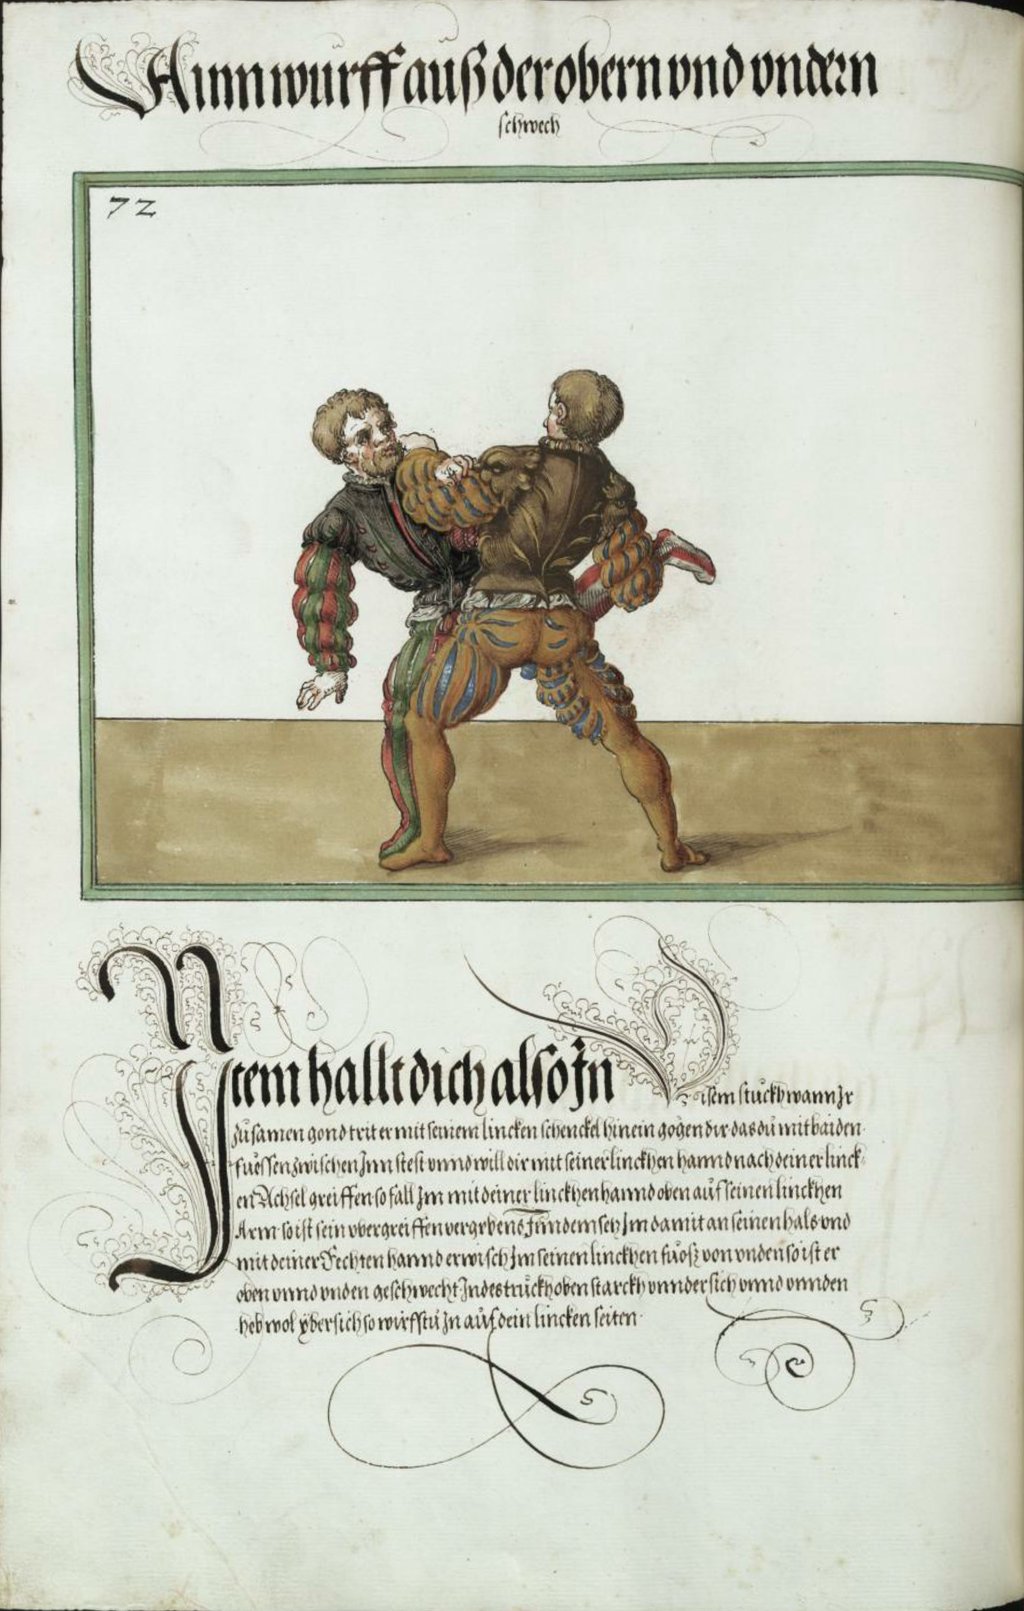 Ainn wurff auß der obern vnd vndern
schwech
72
Item hallt dich also In
disem stuckh wann Ir
zusamen gond trit er mit seinem lincken schenckel hinein gögen dir das du mit baiden
fuessen zwischen Inn stest vnnd will dir mit seiner linckhen hannd nach deiner linck-
en Achsel greiffen so fall Im mit deiner linckhen hannd oben auf seinen linckhen
Arm so ist sein vbergreiffen vergebens Inndem setz Im damit an seinen hals vnd
mit deiner Rechten hannd erwisch Im seinen linckhen fuosz von vnden so ist er
oben vnnd vnden geschwecht Indes truckh oben starckh vnndersich vnnd vnnden
heb wol ybersich so wirfstu In auf dein lincken seiten